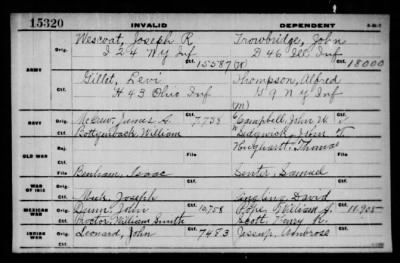 15320 INVALID DEPENDENT
Wescoat, Joseph R. Trowbridge, John
Orig. I 24 N Y Inf Ctf. 15587 D 46 Ill Inf Ctf. 18000
ARMY
Gillet, Levi Thompson, Alfred
Ctf. H 43 Ohio Inf G 9 N Y Inf
(M)
NAVY Orig. James A. Ctf. 7738 Campbell, John W. Ctf.
Ctf. Bottgenback William Sedgwick, John
OLD WAR Thomas
File File
Benham, Isaac Senter, Samuel
WAR OF 1812 Orig. Joseph David
Ctf.
MEXICAN WAR Orig. Dunn, John Ctf. 10758 Pope, William J. Ctf. 11905
Ctf. Proctor, William Smith Scott, Henry R.
INDIAN WAR Orig. Leonard, John Ctf. 7483 Jessup, Ambrose
Ctf.